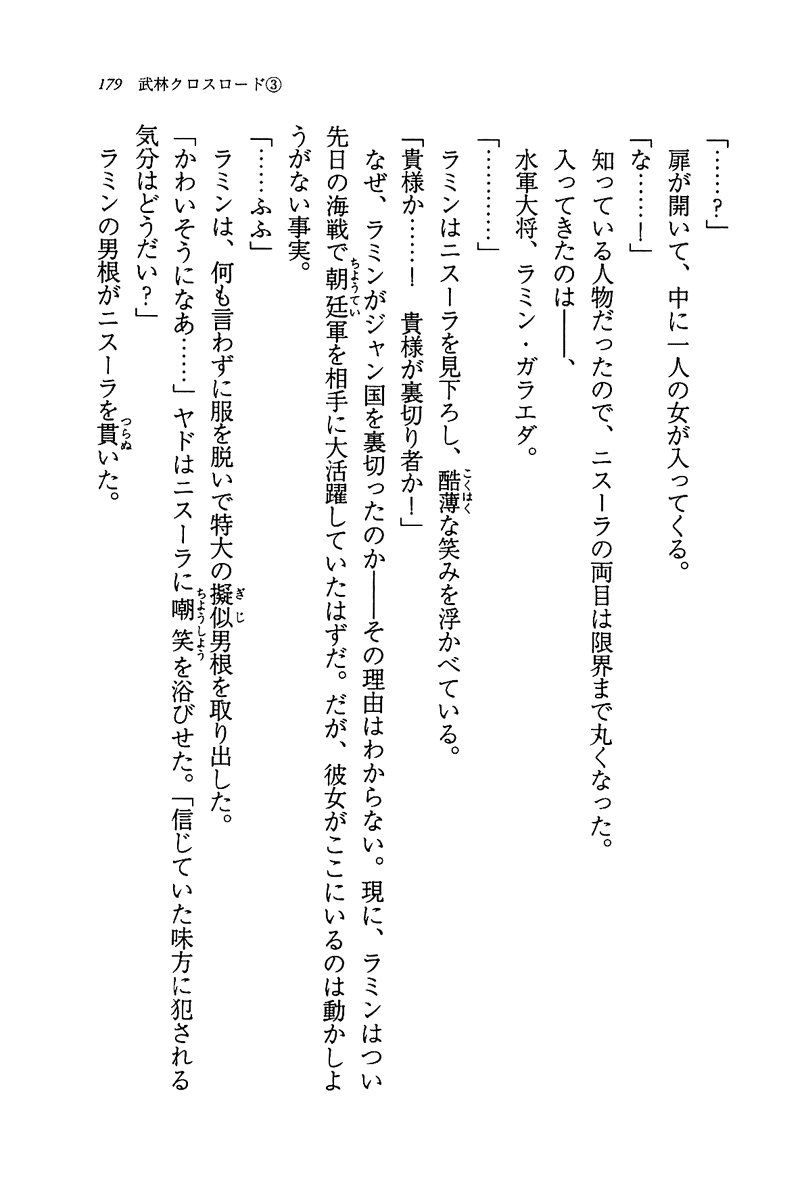 179 武林クロスロード③
「……?」
扉が開いて、中に一人の女が入ってくる。
「な……!」
知っている人物だったので、ニスーラの両目は限界まで丸くなった。
入ってきたのは――、
水軍大将、ラミン・ガラエダ。
「…………」
ラミンはニスーラを見下ろし、酷薄な笑みを浮かべている。
「貴様か……! 貴様が裏切り者か!」
なぜ、ラミンがジャン国を裏切ったのか――その理由はわからない。現に、ラミンはつい
先日の海戦で朝廷軍を相手に大活躍していたはずだ。だが、彼女がここにいるのは動かしよ
うがない事実。
「……ふふ」
ラミンは、何も言わずに服を脱いで特大の擬似男根を取り出した。
「かわいそうになあ……」ヤドはニスーラに嘲笑を浴びせた。「信じていた味方に犯される
気分はどうだい?」
ラミンの男根がニスーラを貫いた。